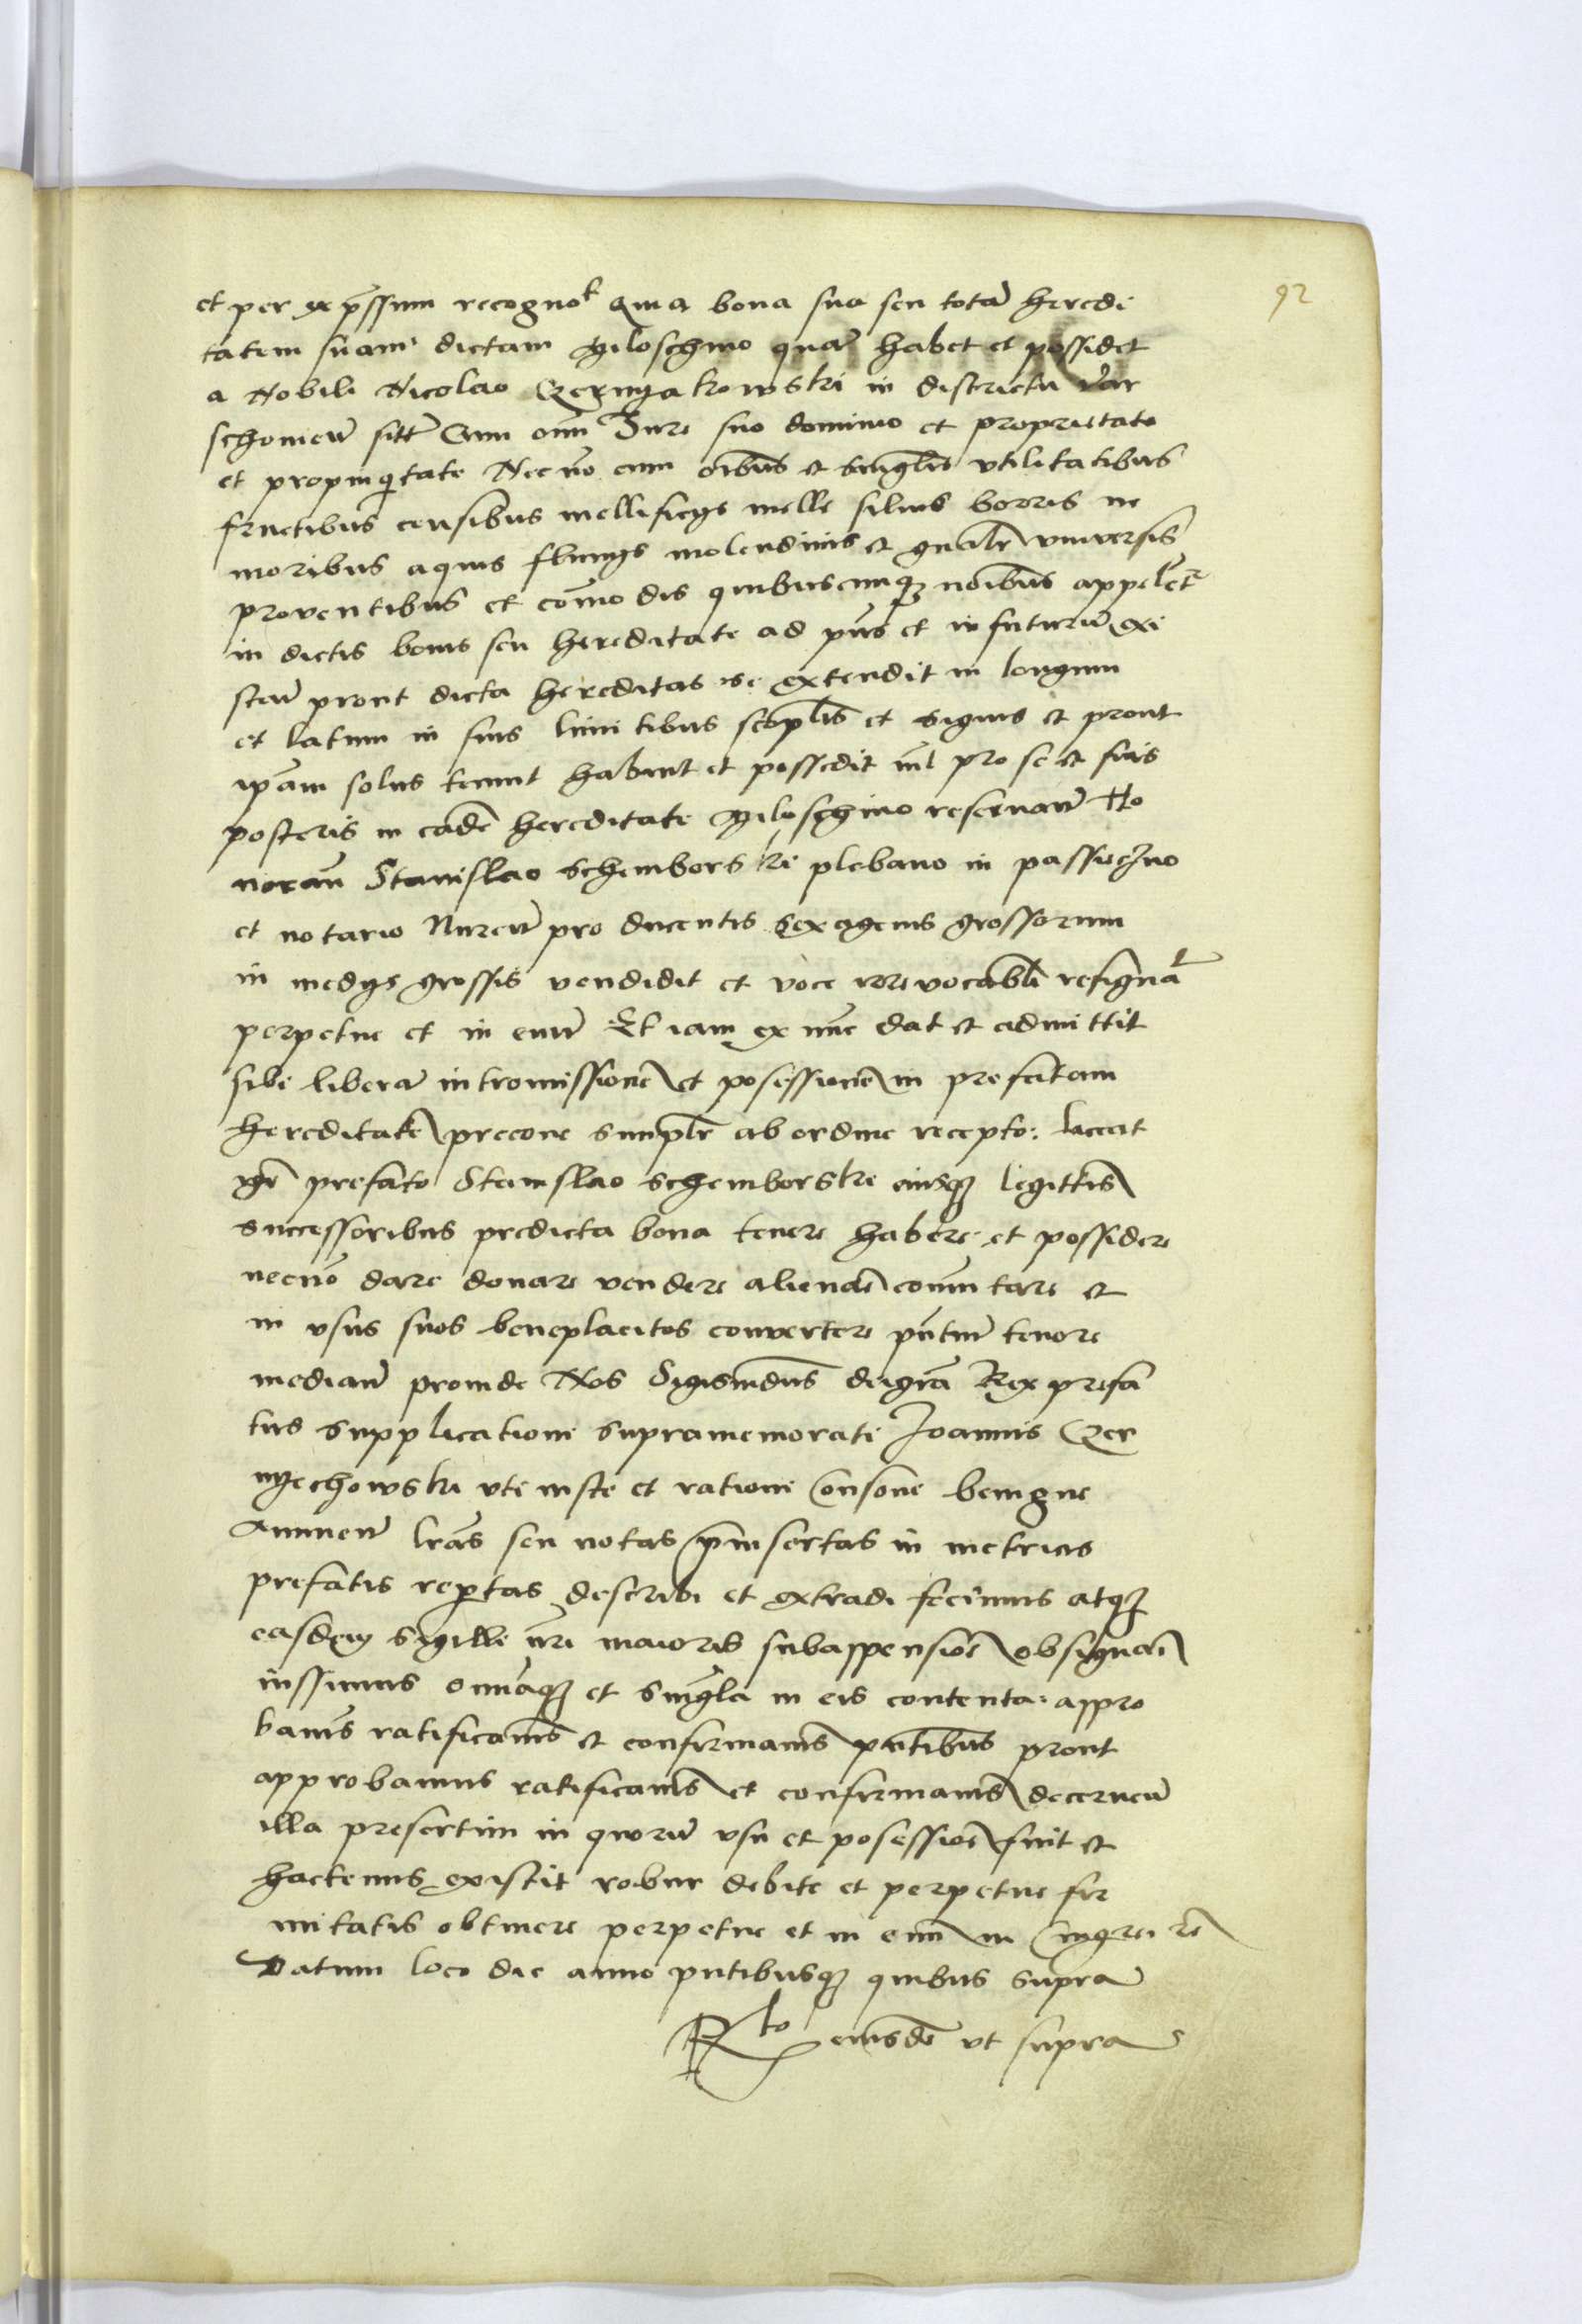 92
et per expssum recognot Quia bona sua seu totā heredi
tatem suam dictam Giloschino quā habet et possidet
a Nobili Nicolao Czernyakowski in districtu Var
schowieñ sitt Cum omni Iure suo dominio et proprietate
et propinqitate Nec nō cum oibus et singlis vtilitatibus
fructibus censibus mellificys melle siluis borris ne
moribus aquis fluuys molendinis et gnalr vniuersis
prouentibus et comodis quibuscumqȝ noibus appellēt
in dictis bonis seu hereditate ad pns et in futurū exi
steñ prout dicta hereditas se extendit in longum
et latum in suis limitibus scoplis et signis et prout
ipam solus tenuit habuit et possedit nil pro se et suis
posteris in eadē hereditate Giloschino reseruañ Ho
noran Stanislao Schemborski plebano in passieczno
et notario Nureñ pro ducentis sexagenis grossorum
in medys grossis vendidit et voce irreuocabli resignat
perpetue et in euū Et iam ex nunc dat et admittit
sibi liberā intromissionē et posessionē in prefatam
hereditatē precone simplr ab ordine recepto: liceat
gr prefato Stanislao Schemborski eiusqȝ legittis
successoribus predicta bona tenere habere et possidere
necnō dare donare vendere alienare comutare et
in vsus suos beneplacitos conuertere pntiū tenore
mediañ proinde Nos Sigismdus dei gra Rex prefa
tus supplicationi supramemorati Joannis Czer
nyechowski vti iuste et rationi Consone benigne
Annueñ lras seu notas pinsertas in metricis
prefatis reptas describi et extradi fecimus atqȝ
easdem sigilli nri maioris subappensione obsignari
iussimus omniaqȝ et singla in eis contenta: appro
bamus ratificamus et confirmamus pntibus prout
approbamus ratificamus et confirmamus decerneñ
illa presertim in quorū vsu et posessione fuit et
hactenus existit robur debite et perpetue fir
mitatis obtinere perpetue et in euū in
Datum loco die anno pntibusqȝ quibus supra
Rto eiusdē vt supra